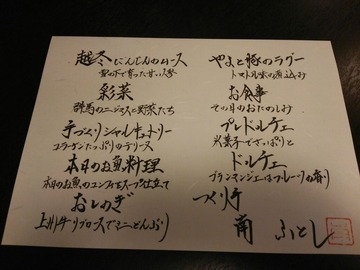 越冬にんじんのムース
雪の下で育った甘い人参
彩菜
群馬のニジマスと野菜たち
手づくりシャルキュトリー
コラーゲンたっぷりのテリーヌ
本日のお魚料理
本日のお魚のコンフィをスープ仕立て
おしのぎ
上州牛リブロースでミニどんぶり
やまと豚のラグー
トマト風味の煮込み
お食事
その日のおたのしみ
プレドルチェ
氷菓子でさっぱりと
ドルチェ
ブランマンジェはフルーツの香り
つくり手
角 ふとし